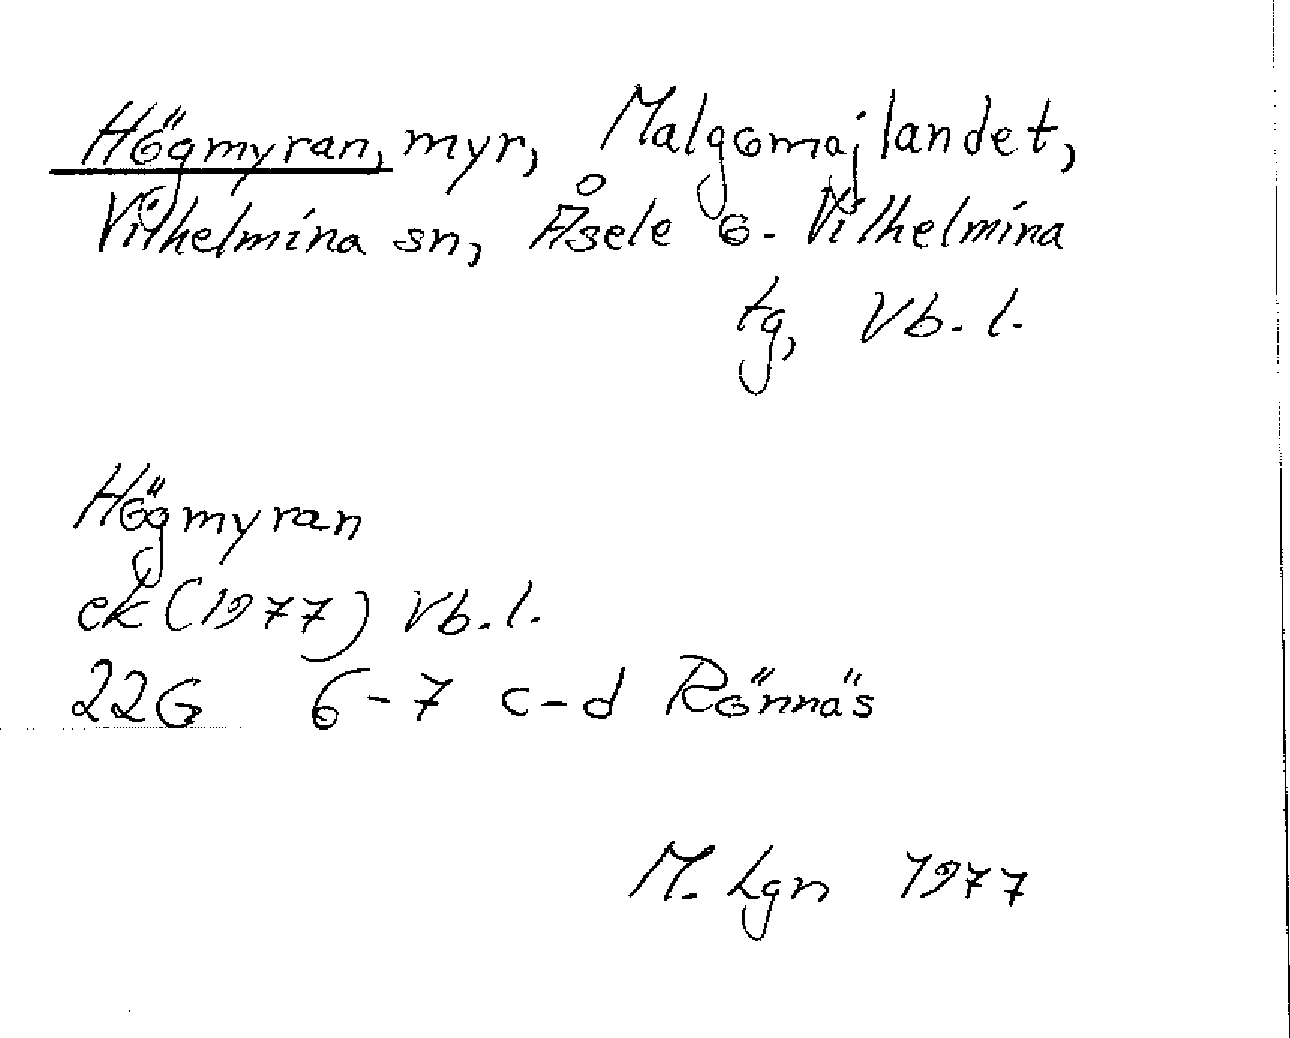 Högmyran, myr, Malgomajlandet,
Vilhelmina sn, Åsele o. Vilhelmina
tg, Vb. l.
Högmyran
ek (1977) Vb. l.
22G 6-7 c-d Rönnäs
M. Lgn 1977